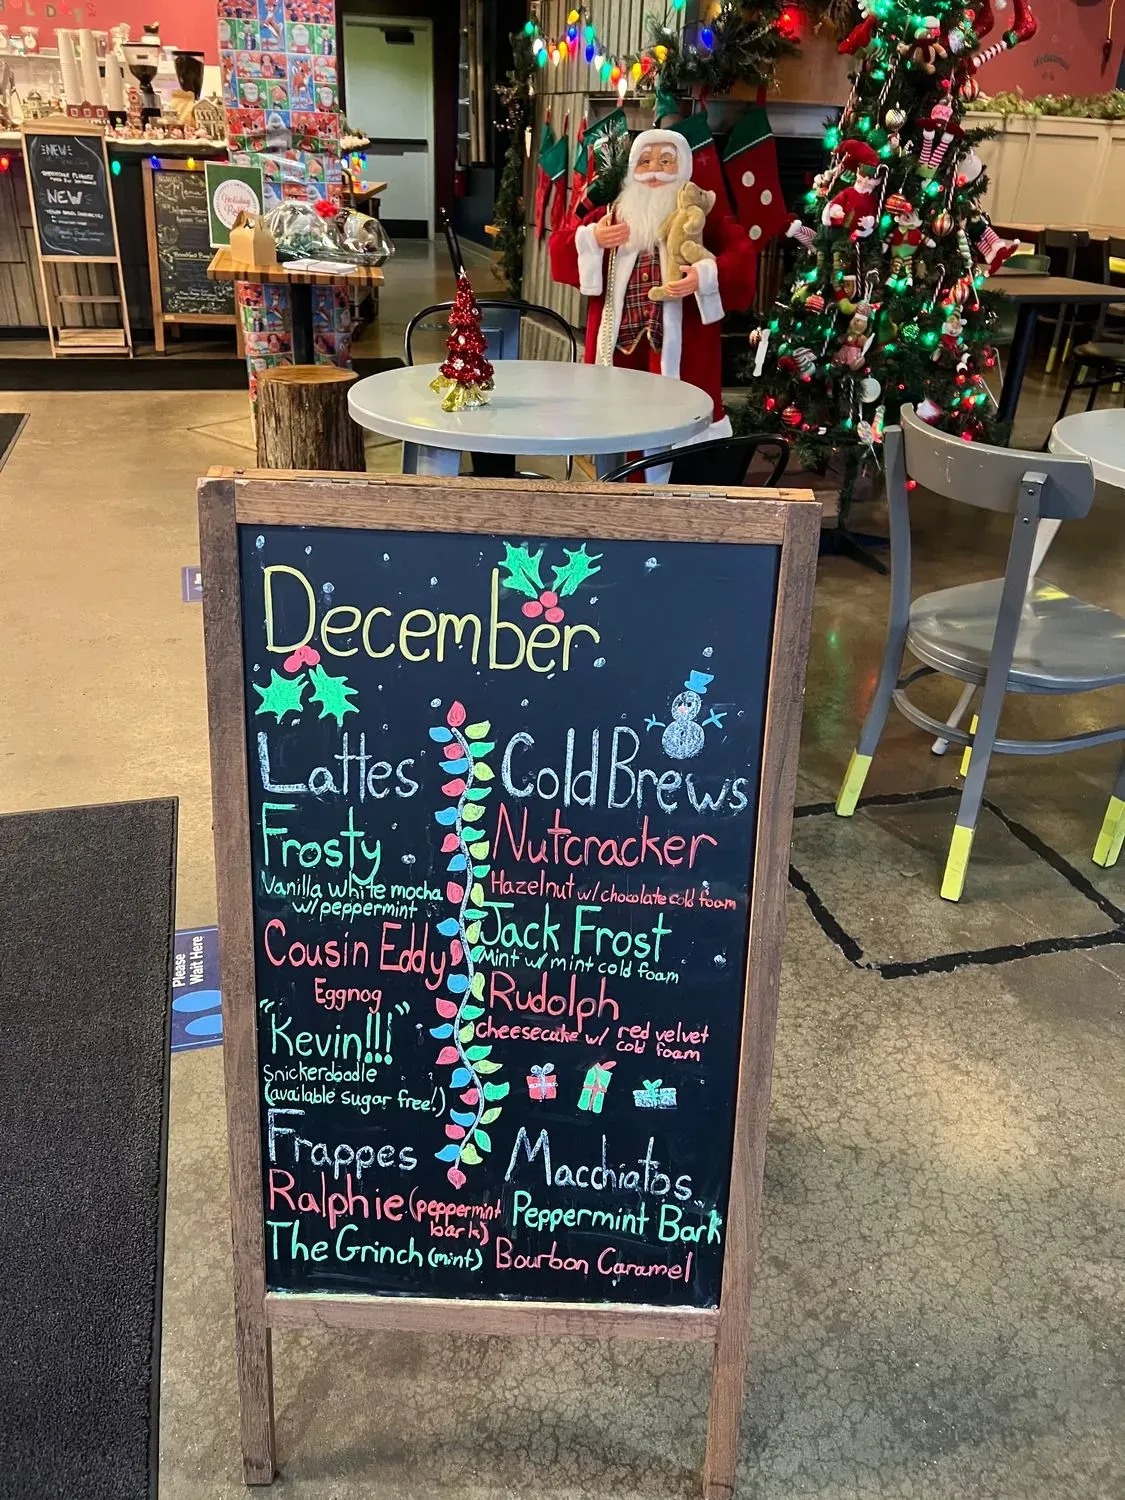 NEW
NEW
Holiday
December
Lattes
Frosty
Vanilla white mocha
w/peppermint
Cousin Eddy
Eggnog
"Kevin!!!"
Snickerdoodle
(available sugar free!)
Frappes
Ralphie (peppermint
bark)
The Grinch (mint)
Cold Brews
Nutcracker
Hazelnut w/ chocolate cold foam
Jack Frost
Mint w/ mint cold foam
Rudolph
Cheesecake w/ red velvet
cold foam
Macchiatos
Peppermint Bark
Bourbon Caramel
Please
Wait Here